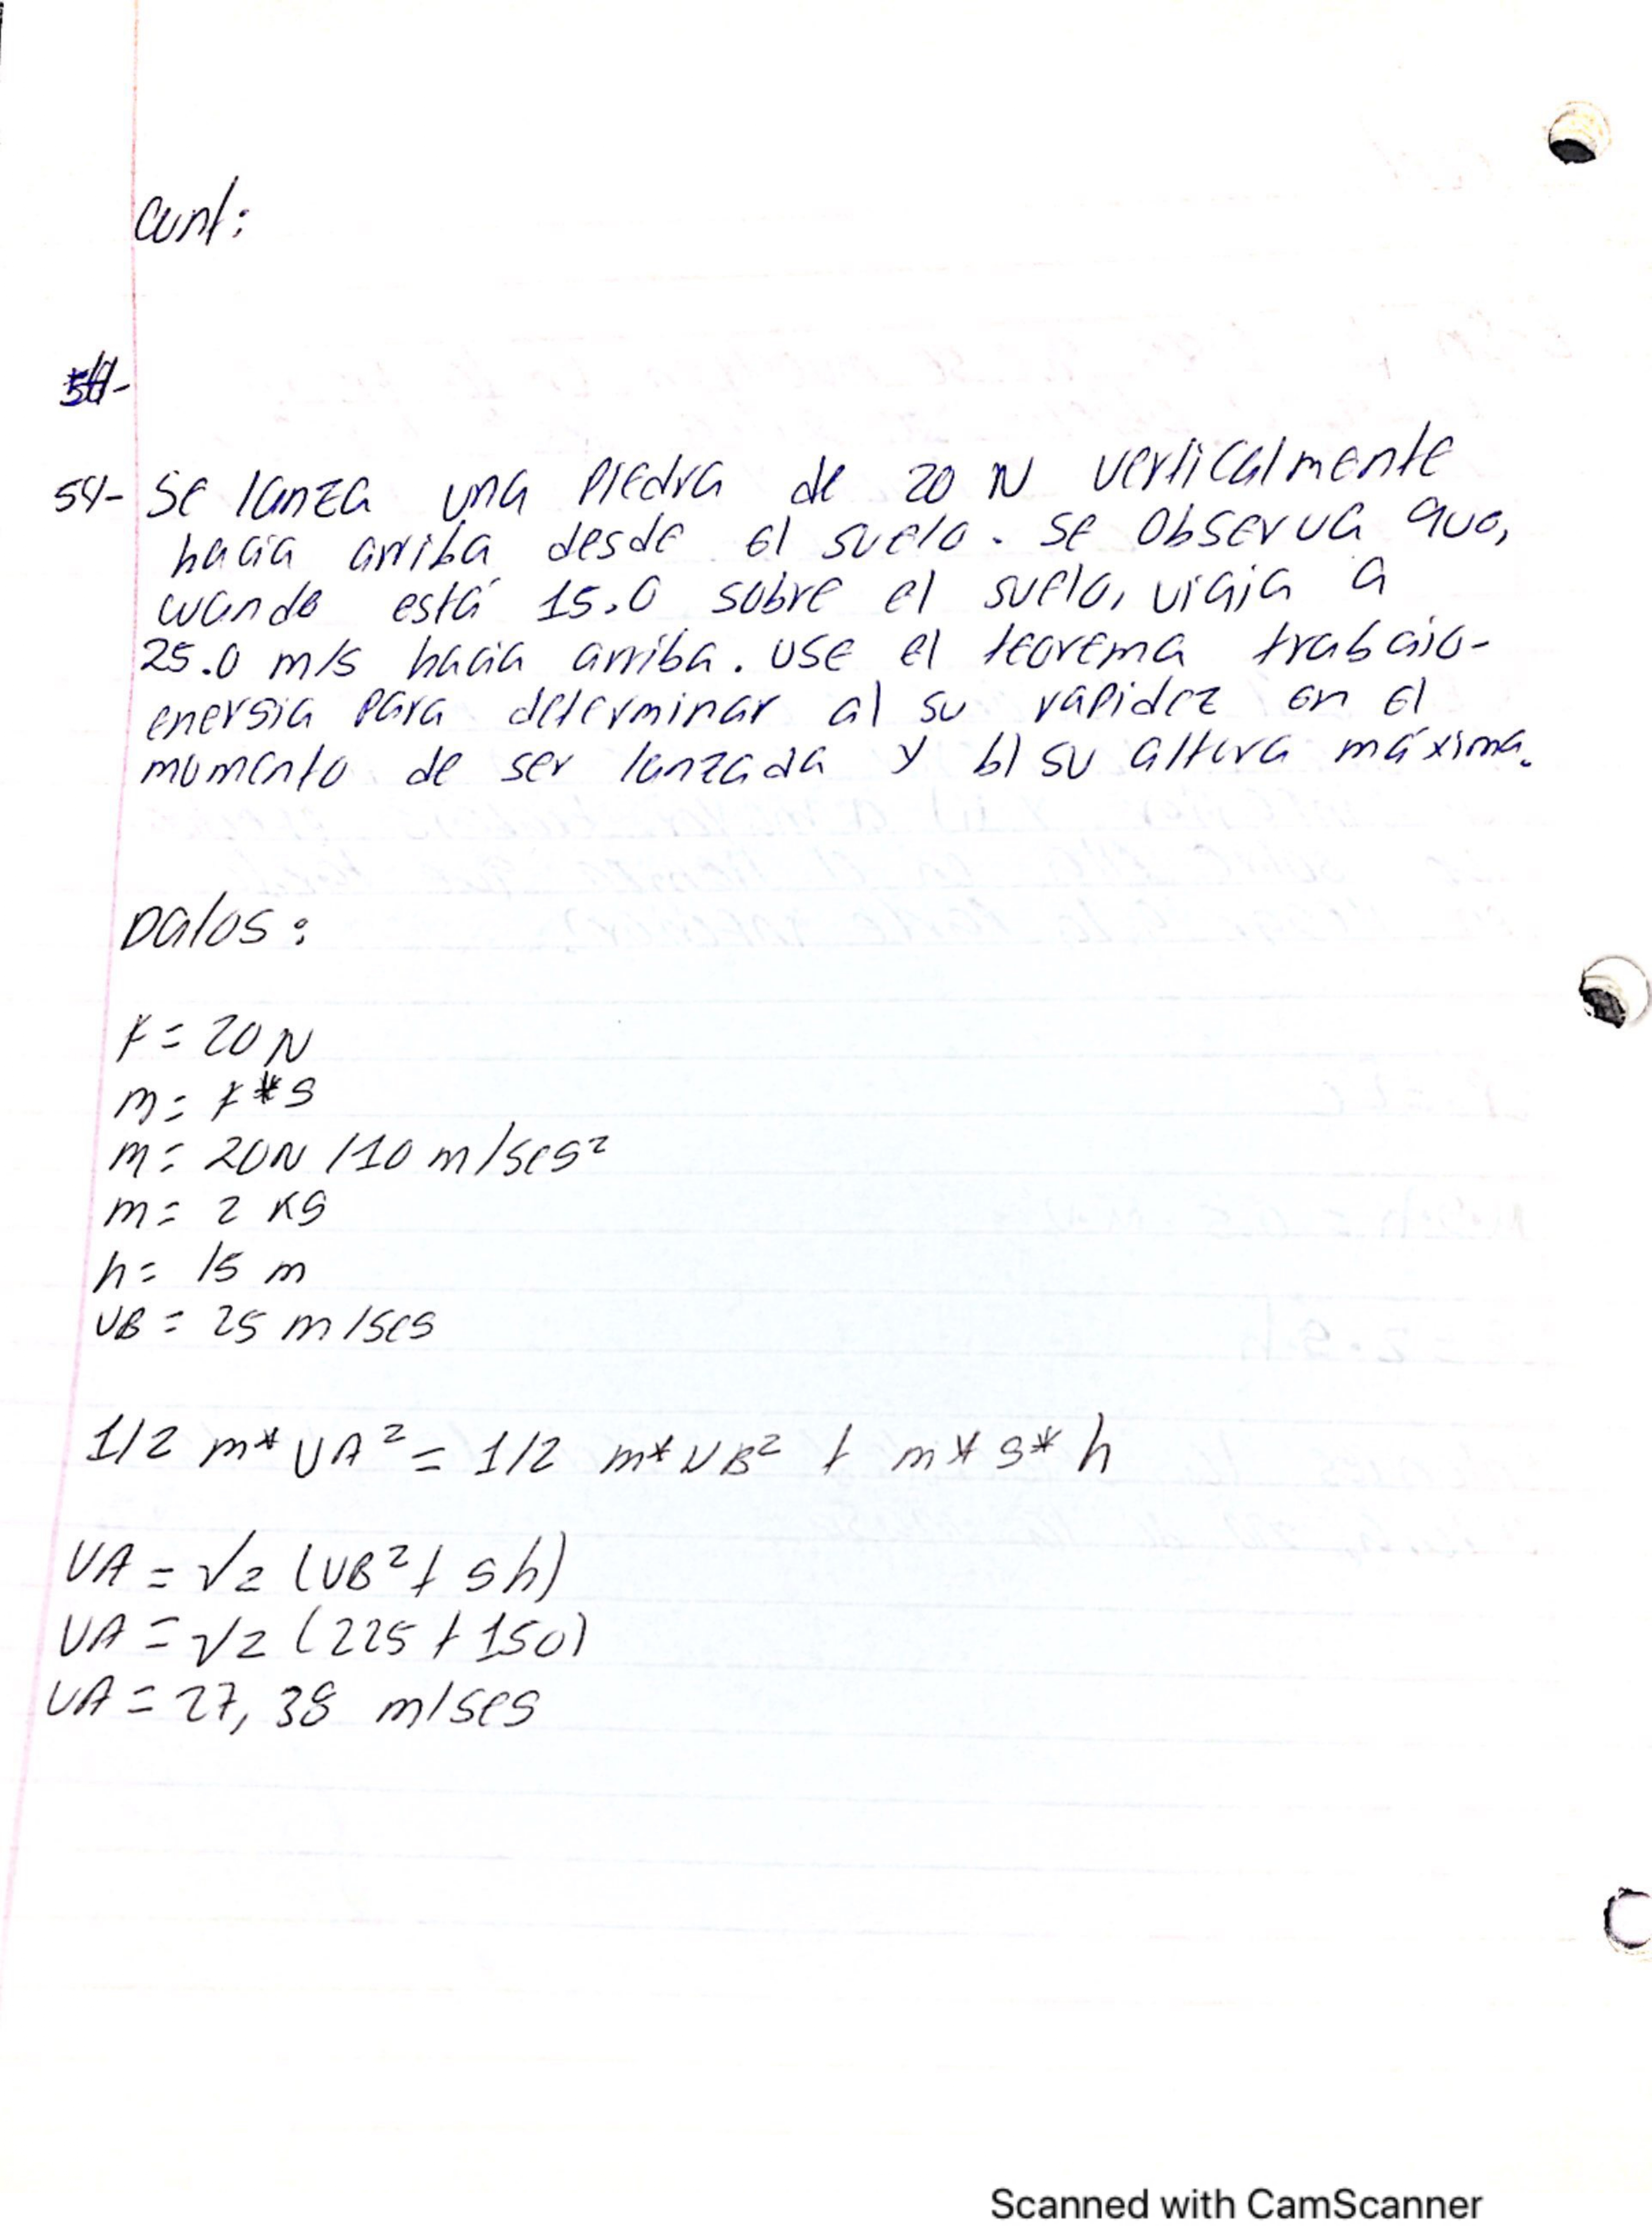 Cont:
54-
54- Se lanza una piedra de 20 N verticalmente
hacia arriba desde el suelo. Se observa que,
cuando está 15.0 sobre el suelo, viaja a
25.0 m/s hacia arriba. Use el teorema trabajo-
energia para determinar a) su rapidez en el
momento de ser lanzada y b) su altura máxima.
Datos:
F = 20 N
m = F * g
m = 20N / 10 m/seg²
m = 2 Kg
h = 15 m
VB = 25 m/seg
1/2 m* VA² = 1/2 m* VB² + m* g* h
VA = √2 (VB² + gh)
VA = √2 (225 + 150)
VA = 27,38 m/seg
Scanned with CamScanner